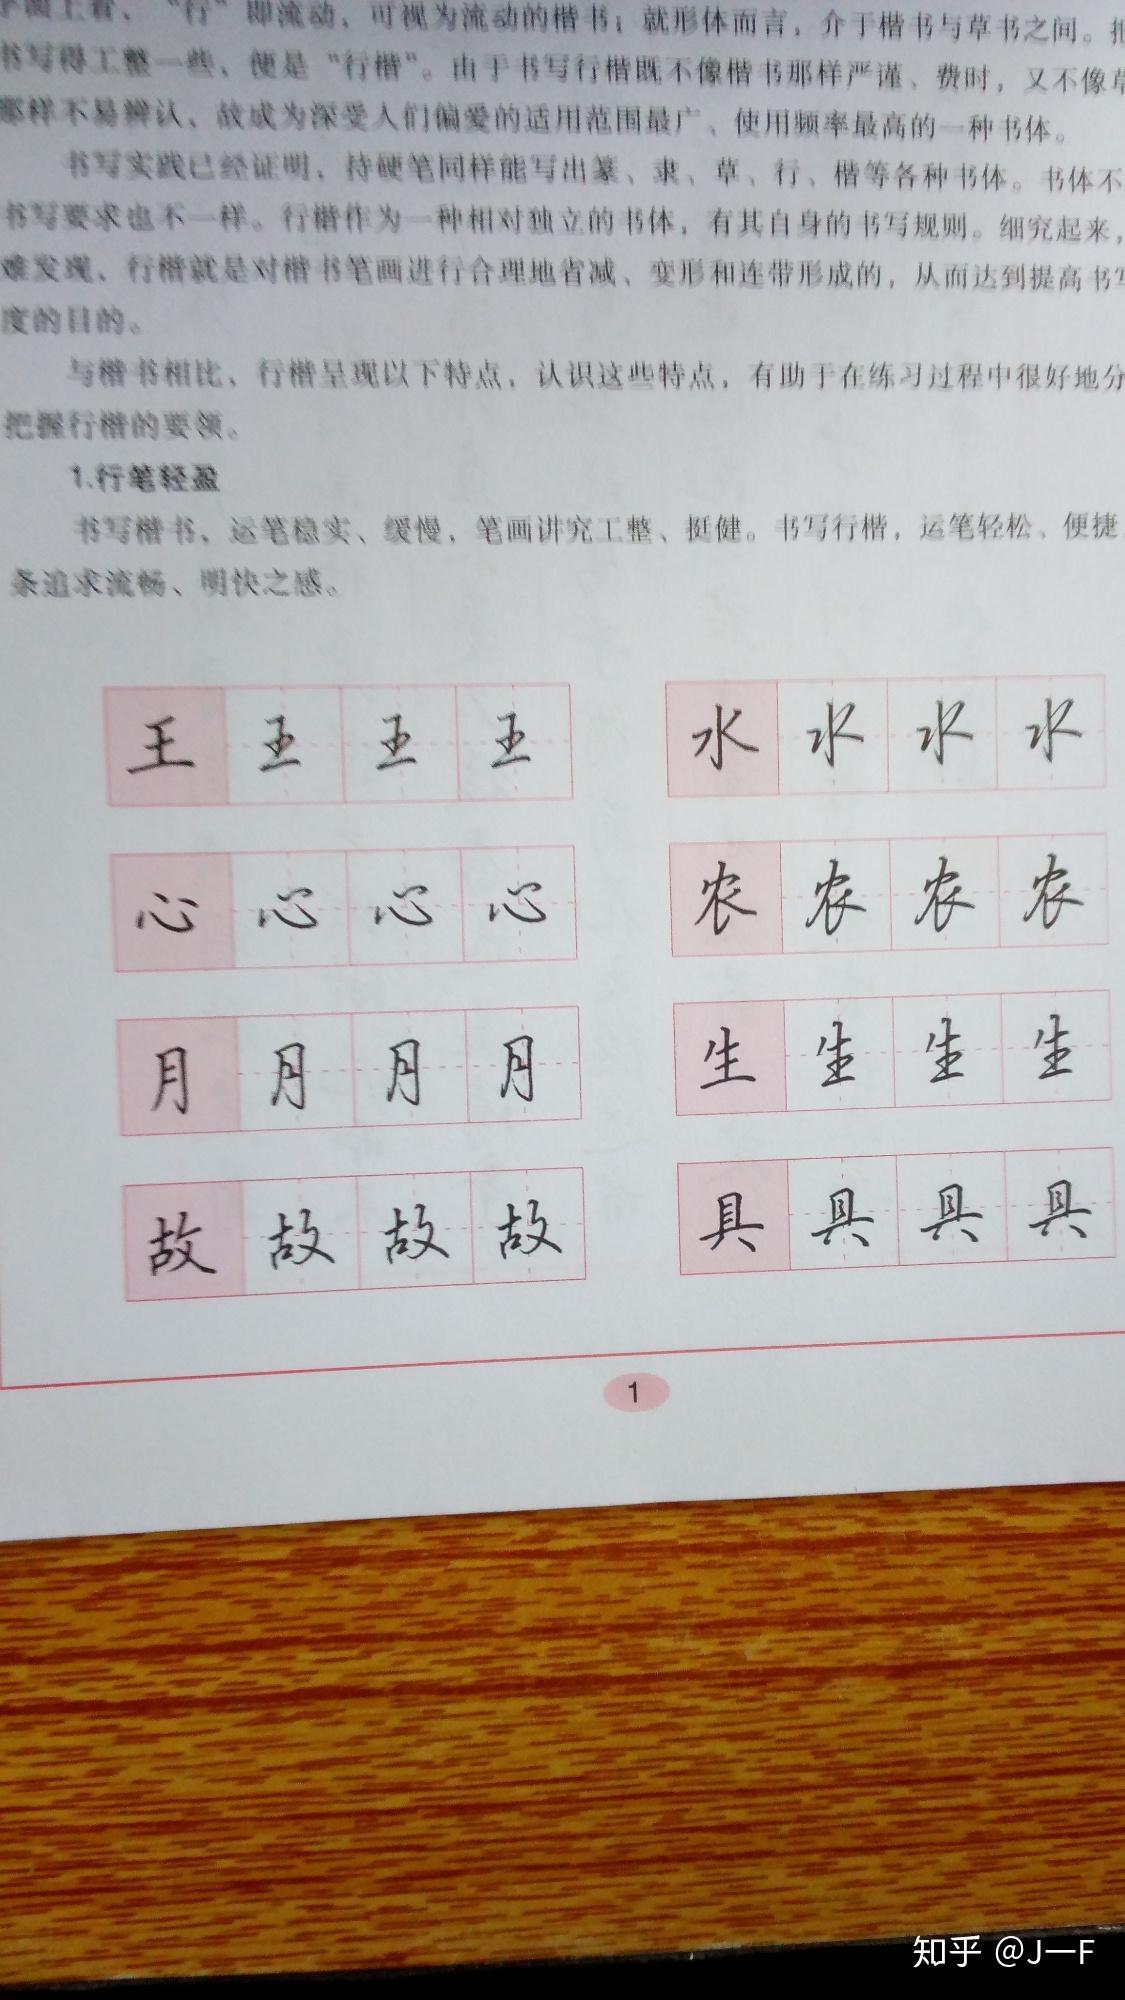 字面上看，“行”即流动，可视为流动的楷书；就形体而言，介于楷书与草书之间。把
书写得工整一些，便是“行楷”。由于书写行楷既不像楷书那样严谨、费时，又不像草
那样不易辨认，故成为深受人们偏爱的适用范围最广、使用频率最高的一种书体。
书写实践已经证明，持硬笔同样能写出篆、隶、草、行、楷等各种书体。书体不
书写要求也不一样。行楷作为一种相对独立的书体，有其自身的书写规则。细究起来，
难发现，行楷就是对楷书笔画进行合理地省减、变形和连带形成的，从而达到提高书写
度的目的。
与楷书相比，行楷呈现以下特点，认识这些特点，有助于在练习过程中很好地分
把握行楷的要领。
1.行笔轻盈
书写楷书，运笔稳实、缓慢，笔画讲究工整、挺健。书写行楷，运笔轻松、便捷
条追求流畅、明快之感。
王 王 王 王 水 水 水 水
心 心 心 心 农 农 农 农
月 月 月 月 生 生 生 生
故 故 故 故 具 具 具 具
1
知乎 @J一F